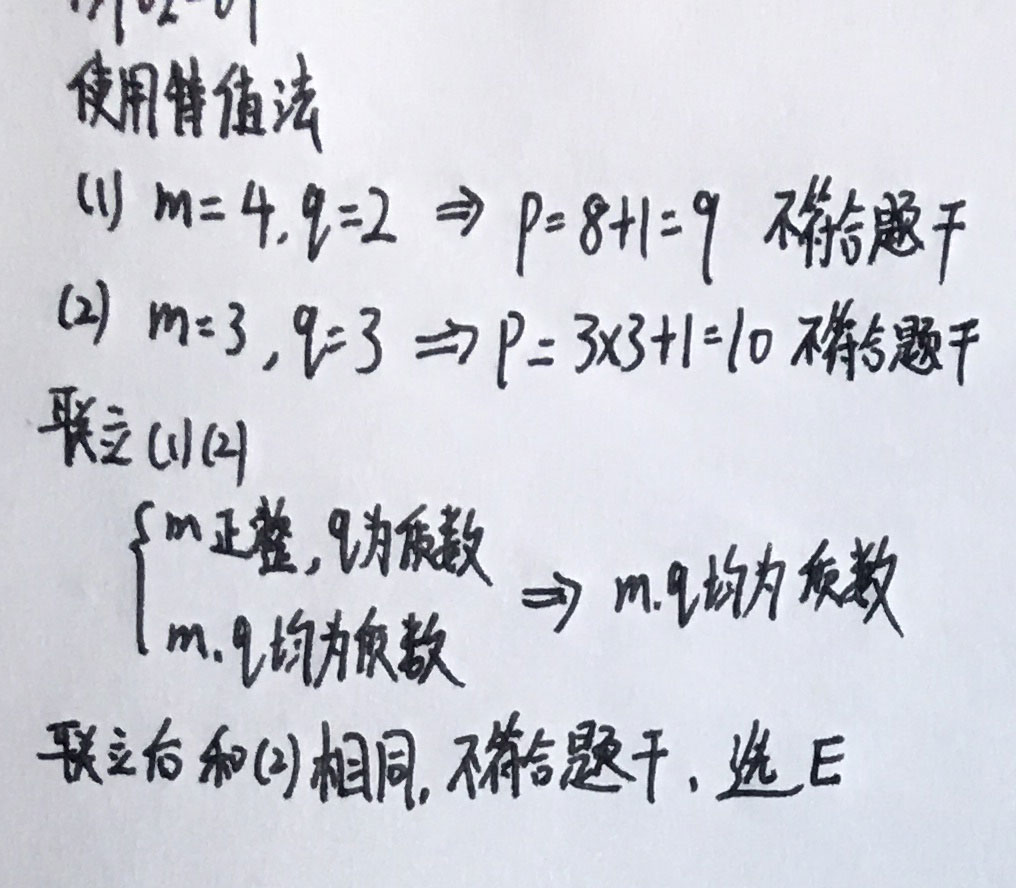 使用特值法
(1) m=4,q=2 ⇒ p=8+1=9 不符合题干
(2) m=3,q=3 ⇒ p=3×3+1=10 不符合题干
联立(1)(2)
m正整,q为质数
m.q均为质数
⇒ m.q均为质数
联立后和(2)相同,不符合题干、选E